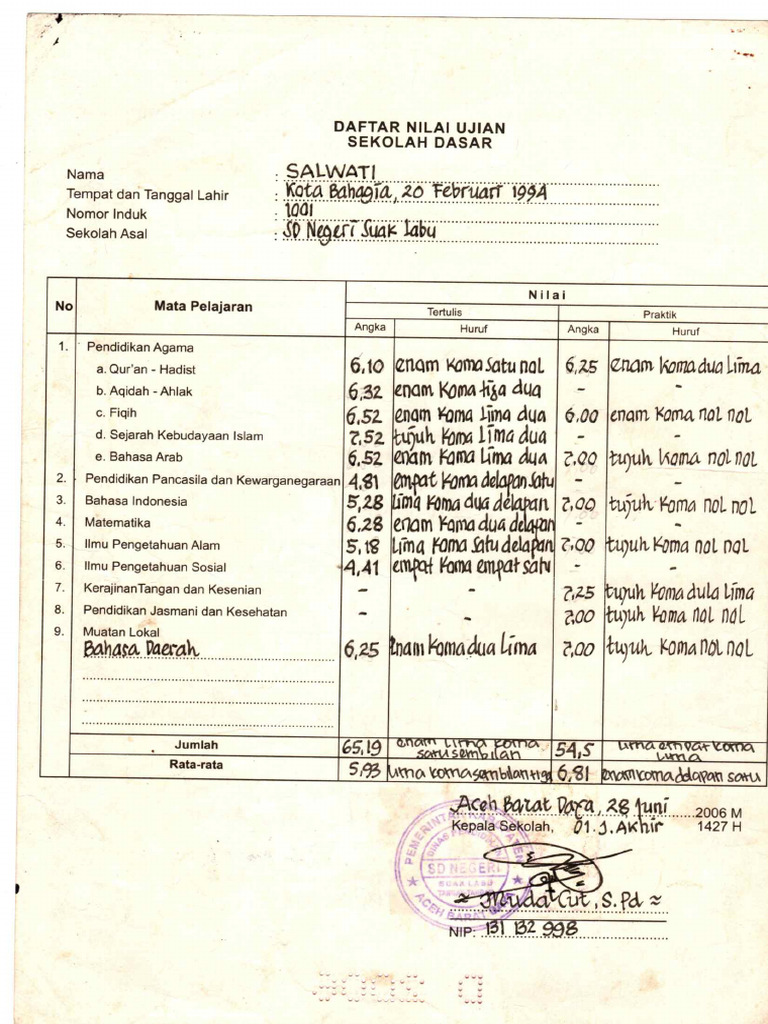 DAFTAR NILAI UJIAN
SEKOLAH DASAR
Nama : SALWATI
Tempat dan Tanggal Lahir : Kota Bahagia, 20 Februari 1994
Nomor Induk : 1001
Sekolah Asal : SD Negeri Suak Labu
No Mata Pelajaran Nilai
Tertulis Praktik
Angka Huruf Angka Huruf
1. Pendidikan Agama
a. Qur'an - Hadist 6,10 enam koma satu nol 6,25 enam koma dua lima
b. Aqidah - Ahlak 6,32 enam koma tiga dua - -
c. Fiqih 6,52 enam koma lima dua 6,00 enam koma nol nol
d. Sejarah Kebudayaan Islam 7,52 tujuh koma lima dua - -
e. Bahasa Arab 6,52 enam koma lima dua 7,00 tujuh koma nol nol
2. Pendidikan Pancasila dan Kewarganegaraan 4,81 empat koma delapan satu - -
3. Bahasa Indonesia 5,28 lima koma dua delapan 7,00 tujuh koma nol nol
4. Matematika 6,28 enam koma dua delapan - -
5. Ilmu Pengetahuan Alam 5,18 lima koma satu delapan 7,00 tujuh koma nol nol
6. Ilmu Pengetahuan Sosial 4,41 empat koma empat satu - -
7. KerajinanTangan dan Kesenian - - 7,25 tujuh koma dula lima
8. Pendidikan Jasmani dan Kesehatan - - 7,00 tujuh koma nol nol
9. Muatan Lokal
Bahasa Daerah 6,25 enam koma dua lima 7,00 tujuh koma nol nol
Jumlah 65,19 enam lima koma satu sembilan 54,5 lima empat koma lima
Rata-rata 5,93 lima koma sembilan tiga 6,81 enam koma delapan satu
Aceh Barat Daya, 28 Juni 2006 M
Kepala Sekolah, 01. J. Akhir 1427 H
PEMERINTAH KABUPATEN
SD NEGERI
SUAK LABU
ACEH BARAT DAYA
Muda Cut, S.Pd
NIP: 131 132 998